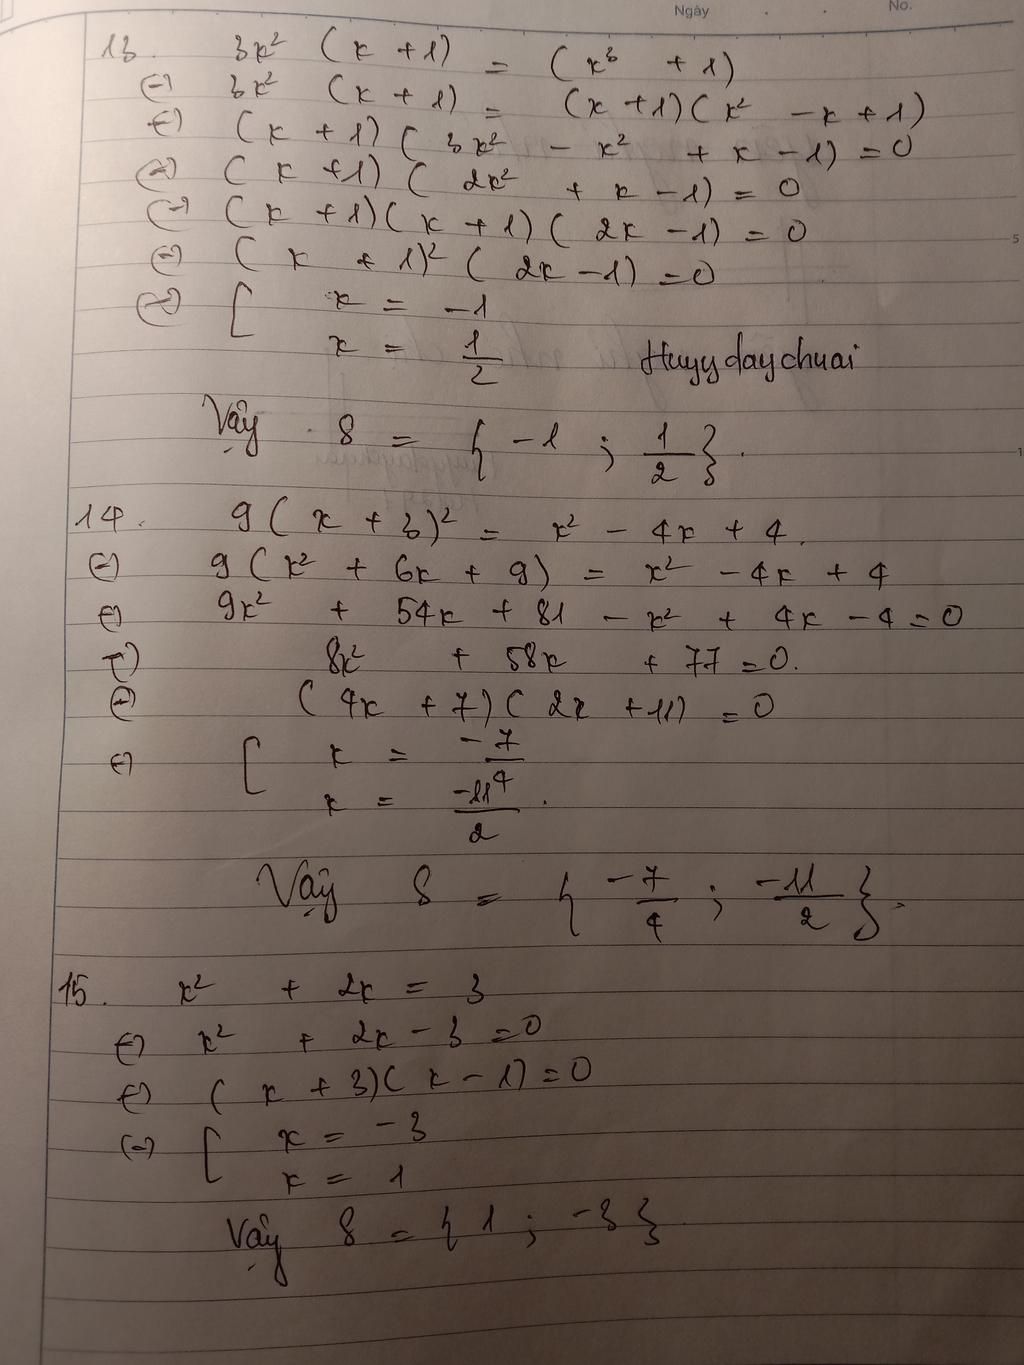 Ngày . . No.
13. 3x² (x + 1) = (x³ + 1)
(=) 3x² (x + 1) = (x + 1)(x² - x + 1)
(=) (x + 1) ( 3x² - x² + x - 1) = 0
(=) (x + 1) ( 2x² + x - 1) = 0
(=) (x + 1)(x + 1)( 2x - 1) = 0
(=) (x + 1)² ( 2x - 1) = 0
(=) [ x = -1
x = 1/2 Huyydaychuai
Vậy S = { -1 ; 1/2 }.
14. 9(x + 3)² = x² - 4x + 4.
(=) 9(x² + 6x + 9) = x² - 4x + 4
(=) 9x² + 54x + 81 - x² + 4x - 4 = 0
(=) 8x² + 58x + 77 = 0.
(=) (4x + 7)( 2x + 11) = 0
(=) [ x = -7/4
x = -11/2 .
Vậy S = { -7/4 ; -11/2 }.
15. x² + 2x = 3
(=) x² + 2x - 3 = 0
(=) (x + 3)(x - 1) = 0
(=) [ x = -3
x = 1
Vậy S = { 1 ; -3 }